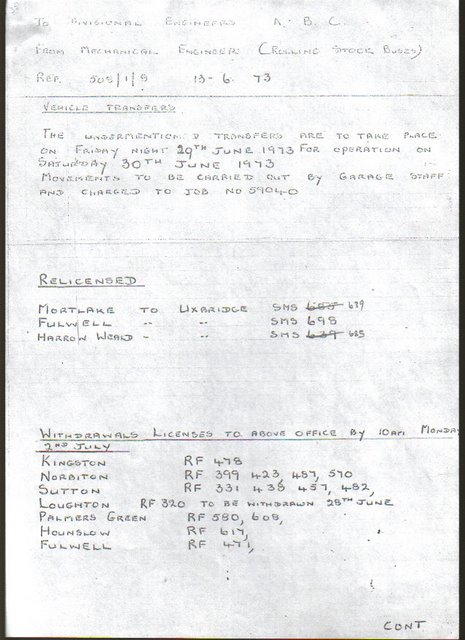 To Divisional Engineers A. B. C.
From Mechanical Engineer (Rolling Stock Buses)
Ref. 505/1/9 13-6.73
Vehicle Transfers
The undermentioned transfers are to take place
on Friday night 29th June 1973 for operation on
Saturday 30th June 1973
Movements to be carried out by garage staff
and charged to job no 5904-0
Relicensed
Mortlake to Uxbridge SMS 685 639
Fulwell -- -- SMS 698
Harrow Weald - -- SMS 639 685
Withdrawals Licenses to above office by 10am Monday
2nd July
Kingston RF 478
Norbiton RF 399 423, 487, 570
Sutton RF 331 438 457, 482,
Loughton RF 320 to be withdrawn 28th June
Palmers Green RF 580, 605,
Hounslow RF 617,
Fulwell RF 471,
CONT